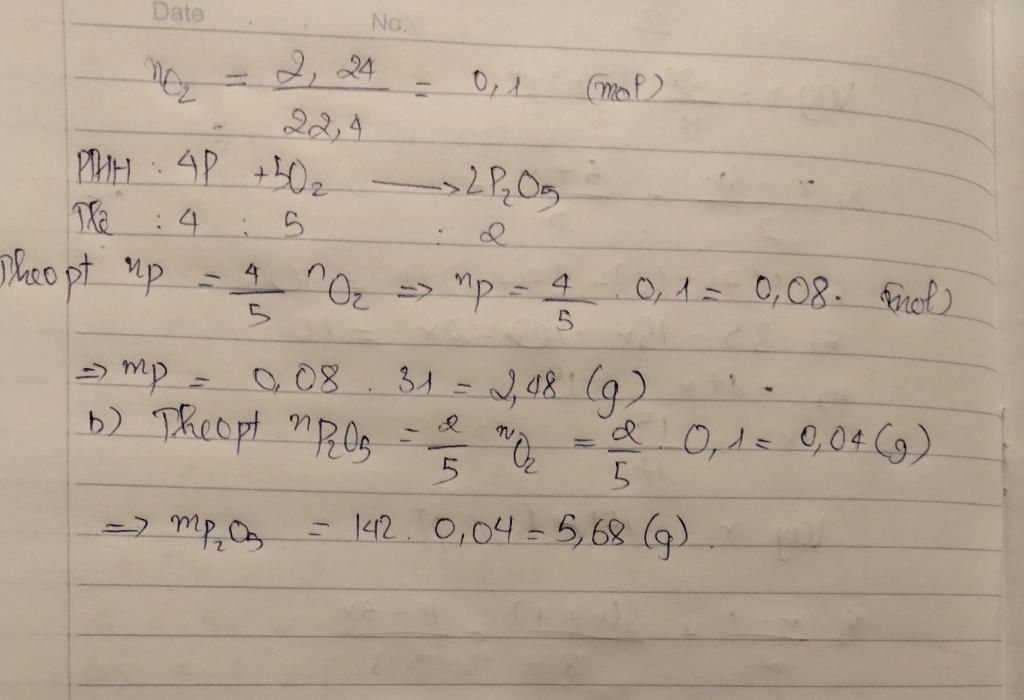 Date No.
nO₂ = 2,24/22,4 = 0,1 (mol)
PTHH : 4P + 5O₂ ⟶ 2P₂O₅
: 4 : 5 : 2
Theo pt nP = 4/5 nO₂ ⇒ nP = 4/5 . 0,1 = 0,08. (mol)
⇒ mP = 0,08 . 31 = 2,48 (g)
b) Theo pt nP₂O₅ = 2/5 nO₂ = 2/5 . 0,1 = 0,04 (g)
⇒ mP₂O₅ = 142 . 0,04 = 5,68 (g).